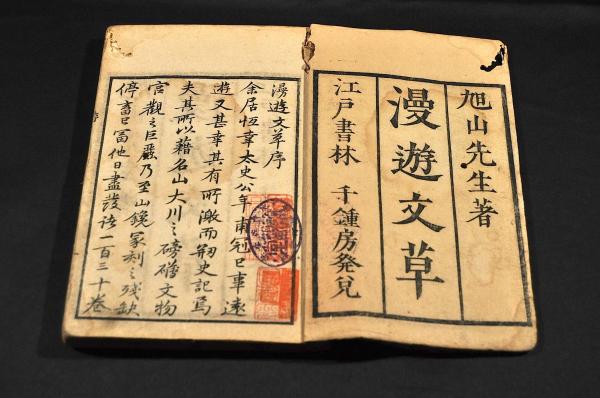 旭山先生著
漫遊文草
江戸書林 千鍾房発兌
漫遊文草序
余居恒韋太史公年甫冠已事遠
遊又甚幸其有所激而剏史記焉
夫其所以藉名山大川之磅礴文物
官觀之巨麗乃至山鑱冢刻之残缺
停畜已冨他日盡發諸一百三十巻